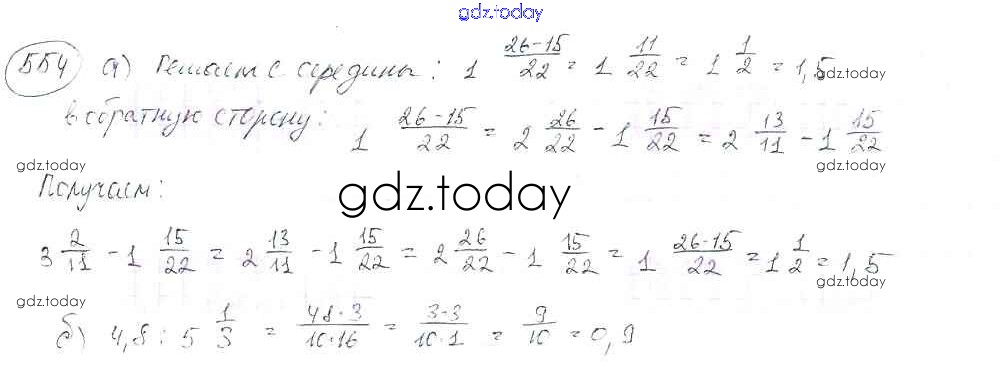 gdz.today
554 а) Решаем с середины: 1 26-15/22 = 1 11/22 = 1 1/2 = 1,5
gdz.today
в обратную сторону: 1 26-15/22 = 2 26/22 - 1 15/22 = 2 13/11 - 1 15/22
gdz.today
gdz.today
Получаем:
gdz.today
3 2/11 - 1 15/22 = 2 13/11 - 1 15/22 = 2 26/22 - 1 15/22 = 1 26-15/22 = 1 1/2 = 1,5
gdz.today
gdz.today
б) 4,8 : 5 1/3 = 48·3/10·16 = 3·3/10·1 = 9/10 = 0,9
gdz.today
gdz.today